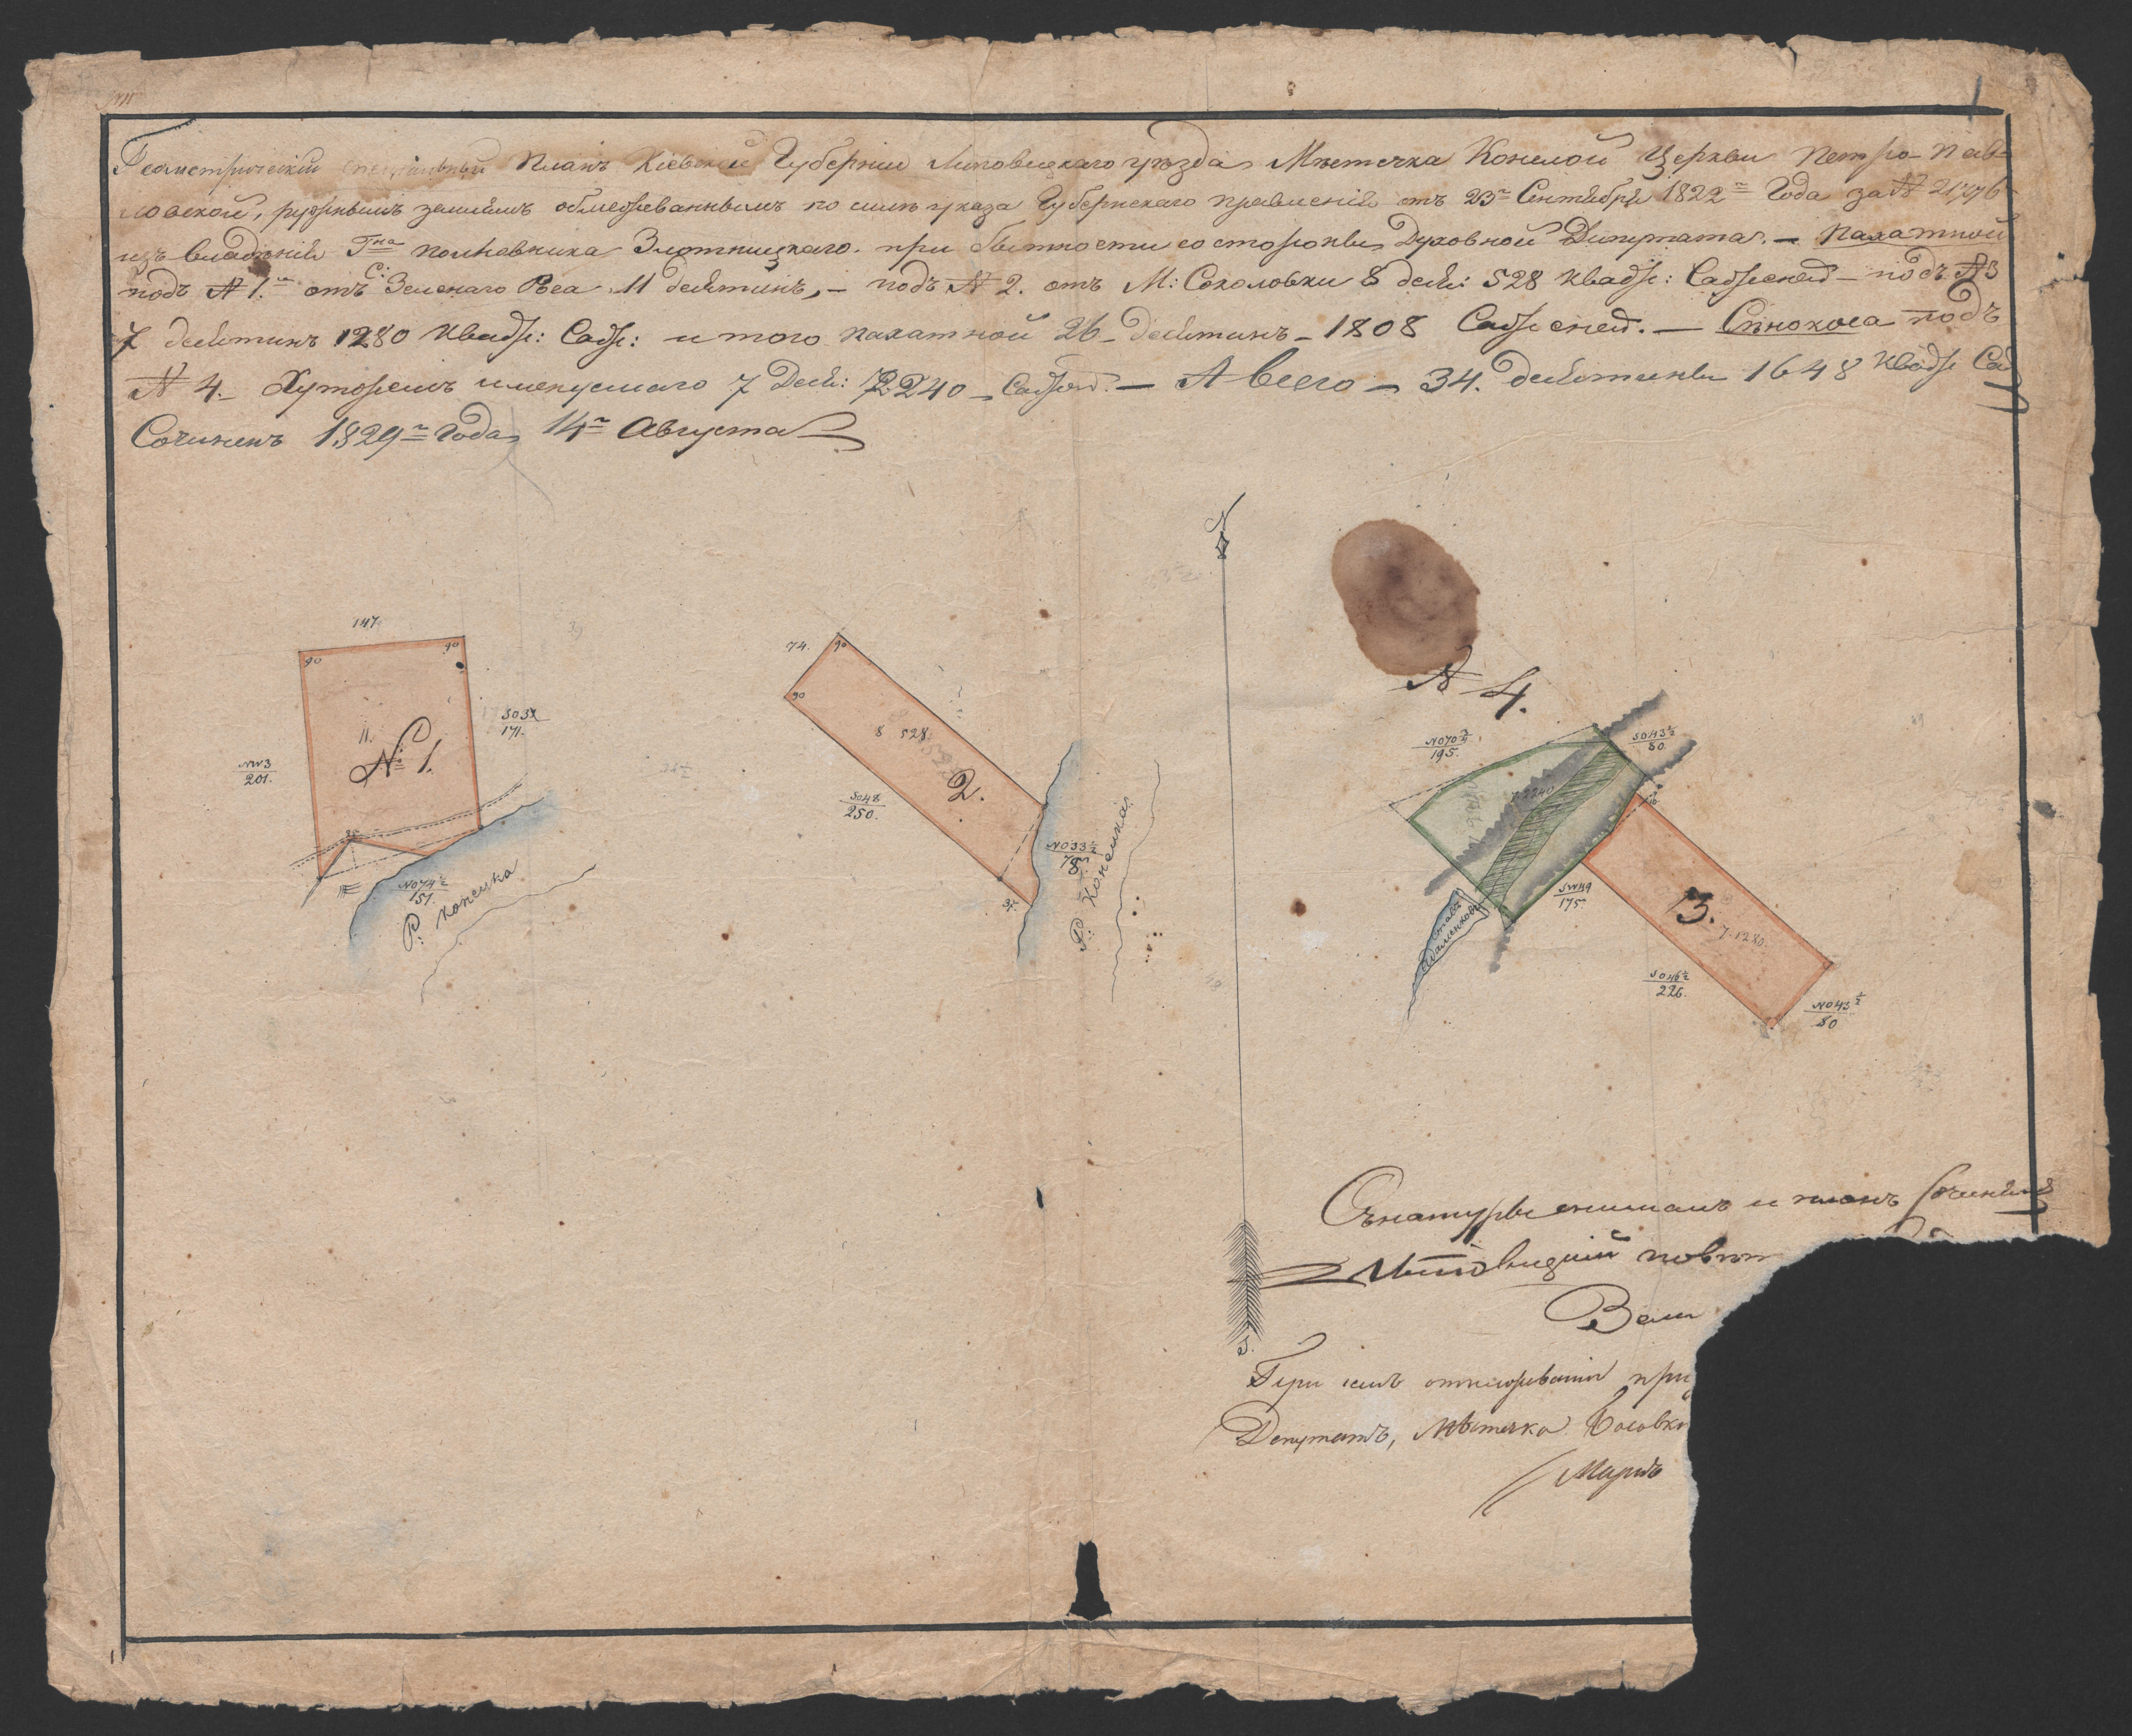 Геометрический специальный Планъ Кіевской Губерніи Липовецкаго уезда Мѣстечка Конелой Церкви Петро-Пав=
ловской, ружнымъ землямъ обмежеваннымъ по силѣ указа Губернскаго правленія отъ 23го Сентября 1822го Года за №
изъ владѣнія Гна полковника Злотницкаго. при бытности со стороны Духовной Депутата. — Пахатной
подъ № 1.м отъ С: Зеленаго Рога 11 десятинъ, — подъ № 2. отъ М: Соколовки 8 деся: 528 квадр: Саженей — подъ № 3
7 десятинъ 1280 квадр: Саж: итого пахатной 26 десятинъ — 1808 Саженей. — Сѣнокоса подъ
№ 4. Хуторемъ именуемаго 7 Деся: 2240 Сажен. — А всего — 34. десятины 1648 квадр Саж
Сочиненъ 1829го Года 14го Августа
N
147.
90
90
11.
№ 1.
SO3
171.
NW3
201.
NO74½
151.
Р: Конелка
74.
90
90
8 528
2.
SO48
250.
NO33½
78
Р: Конелка
№ 4.
NO70¾
195.
SO43½
80.
7.2240
ставъ
SW49
175
3.
7.1280.
SO46½
226.
NO43½
80
S.
Съ натуры снималъ и планъ сочинялъ
Липовецкій повѣт
При семъ отмежеваніи при
Депутатъ, Мѣстечка Босовки